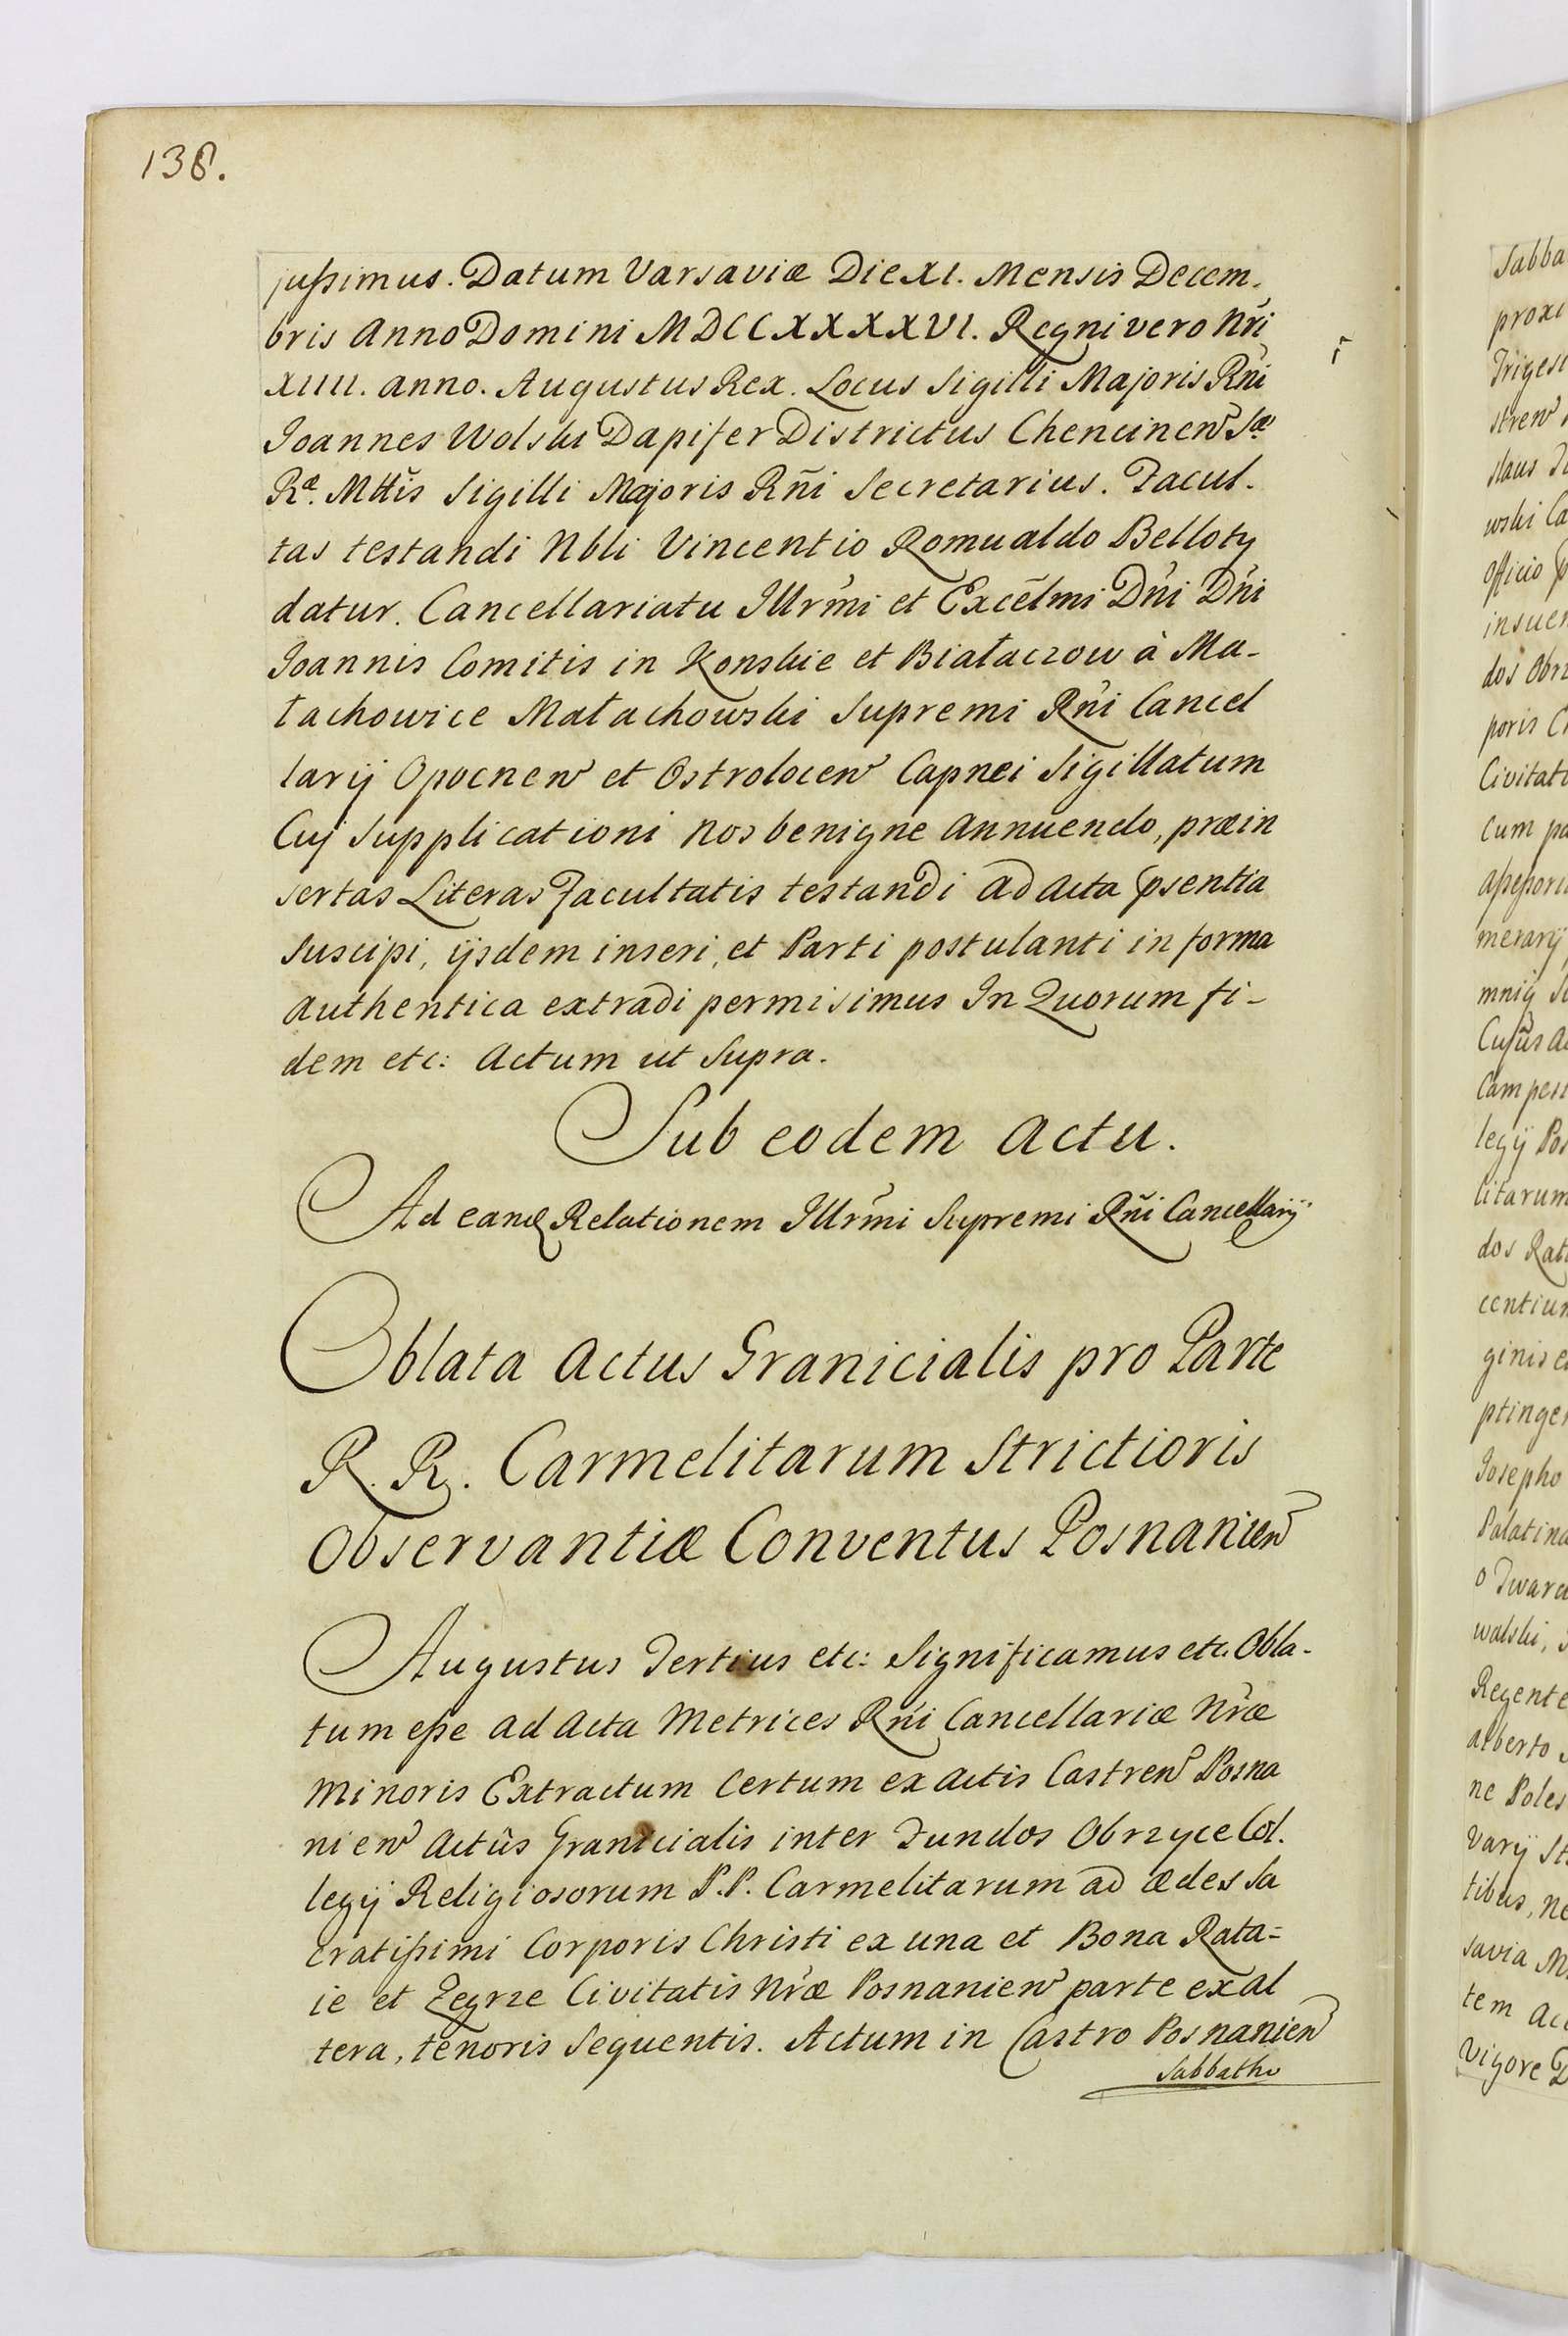 138.
jussimus. Datum Varsaviæ Die XI. Mensis Decem-
bris Anno Domini MDCCXXXXVI. Regni vero Nr̃i
XIIII. anno. Augustus Rex. Locus Sigilli Majoris Rñi
Joannes Wolski Dapifer Districtus Chencinen̄ Sæ
Ræ. Mttis Sigilli Majoris Rñi Secretarius. Facul-
tas testandi Nbli Vincentio Romualdo Belloty
datur. Cancellariatu Illr̃mi et Excel̃mi Dñi Dñi
Joannis Comitis in Konskie et Białaczow à Ma-
łachowice Małachowski Supremi Rñi Cancel
larij Opocnen̄ et Ostrolocen̄ Capnei Sigillatum
Cuj Supplicationi nos benigne annuendo, præin
sertas Literas Facultatis testandi ad acta psentia
suscipi, ijsdem inseri, et Parti postulanti in forma
authentica extradi permisimus In Quorum fi-
dem etc: Actum ut Supra.
Sub eodem actu.
Ad eandę Relationem Illr̃mi Supremi Rñi Cancellarij
Oblata Actus Granicialis pro Parte
R. R. Carmelitarum Strictioris
Observantiæ Conventus Posnanien̄
Augustus Tertius etc: Significamus etc. Obla-
tum esse ad Acta Metrices Rñi Cancellariæ Nr̃æ
Minoris Extractum Certum ex actis Castren̄ Posna
nien̄ Actûs Granicialis inter Fundos Obrzyce Col.
legij Religiosorum P.P. Carmelitarum ad ædes Sa
cratissimi Corporis Christi ex una et Bona Rata=
ie et Zegrze Civitatis Nr̃æ Posnanien̄ parte ex al
tera, tenoris Sequentis. Actum in Castro Posnanien̄
Sabbatho